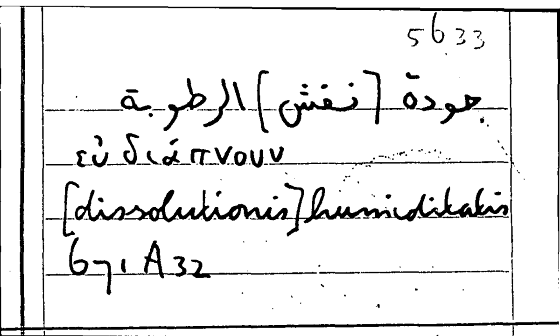 5633
جودة [نفش] الرطوبة
εὐ διάπνουν
[dissolutionis] humiditatis
671 A32